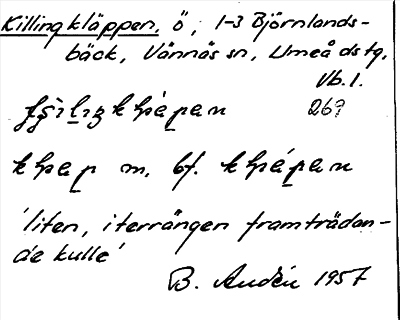 Killingkläppen, ö, 1-3 Björnlands-
bäck, Vännäs sn, Umeå dstg.
Vb. l.
26?
m. bf.
'liten, i terrängen framträdan-
de kulle'
B. Audén 1957